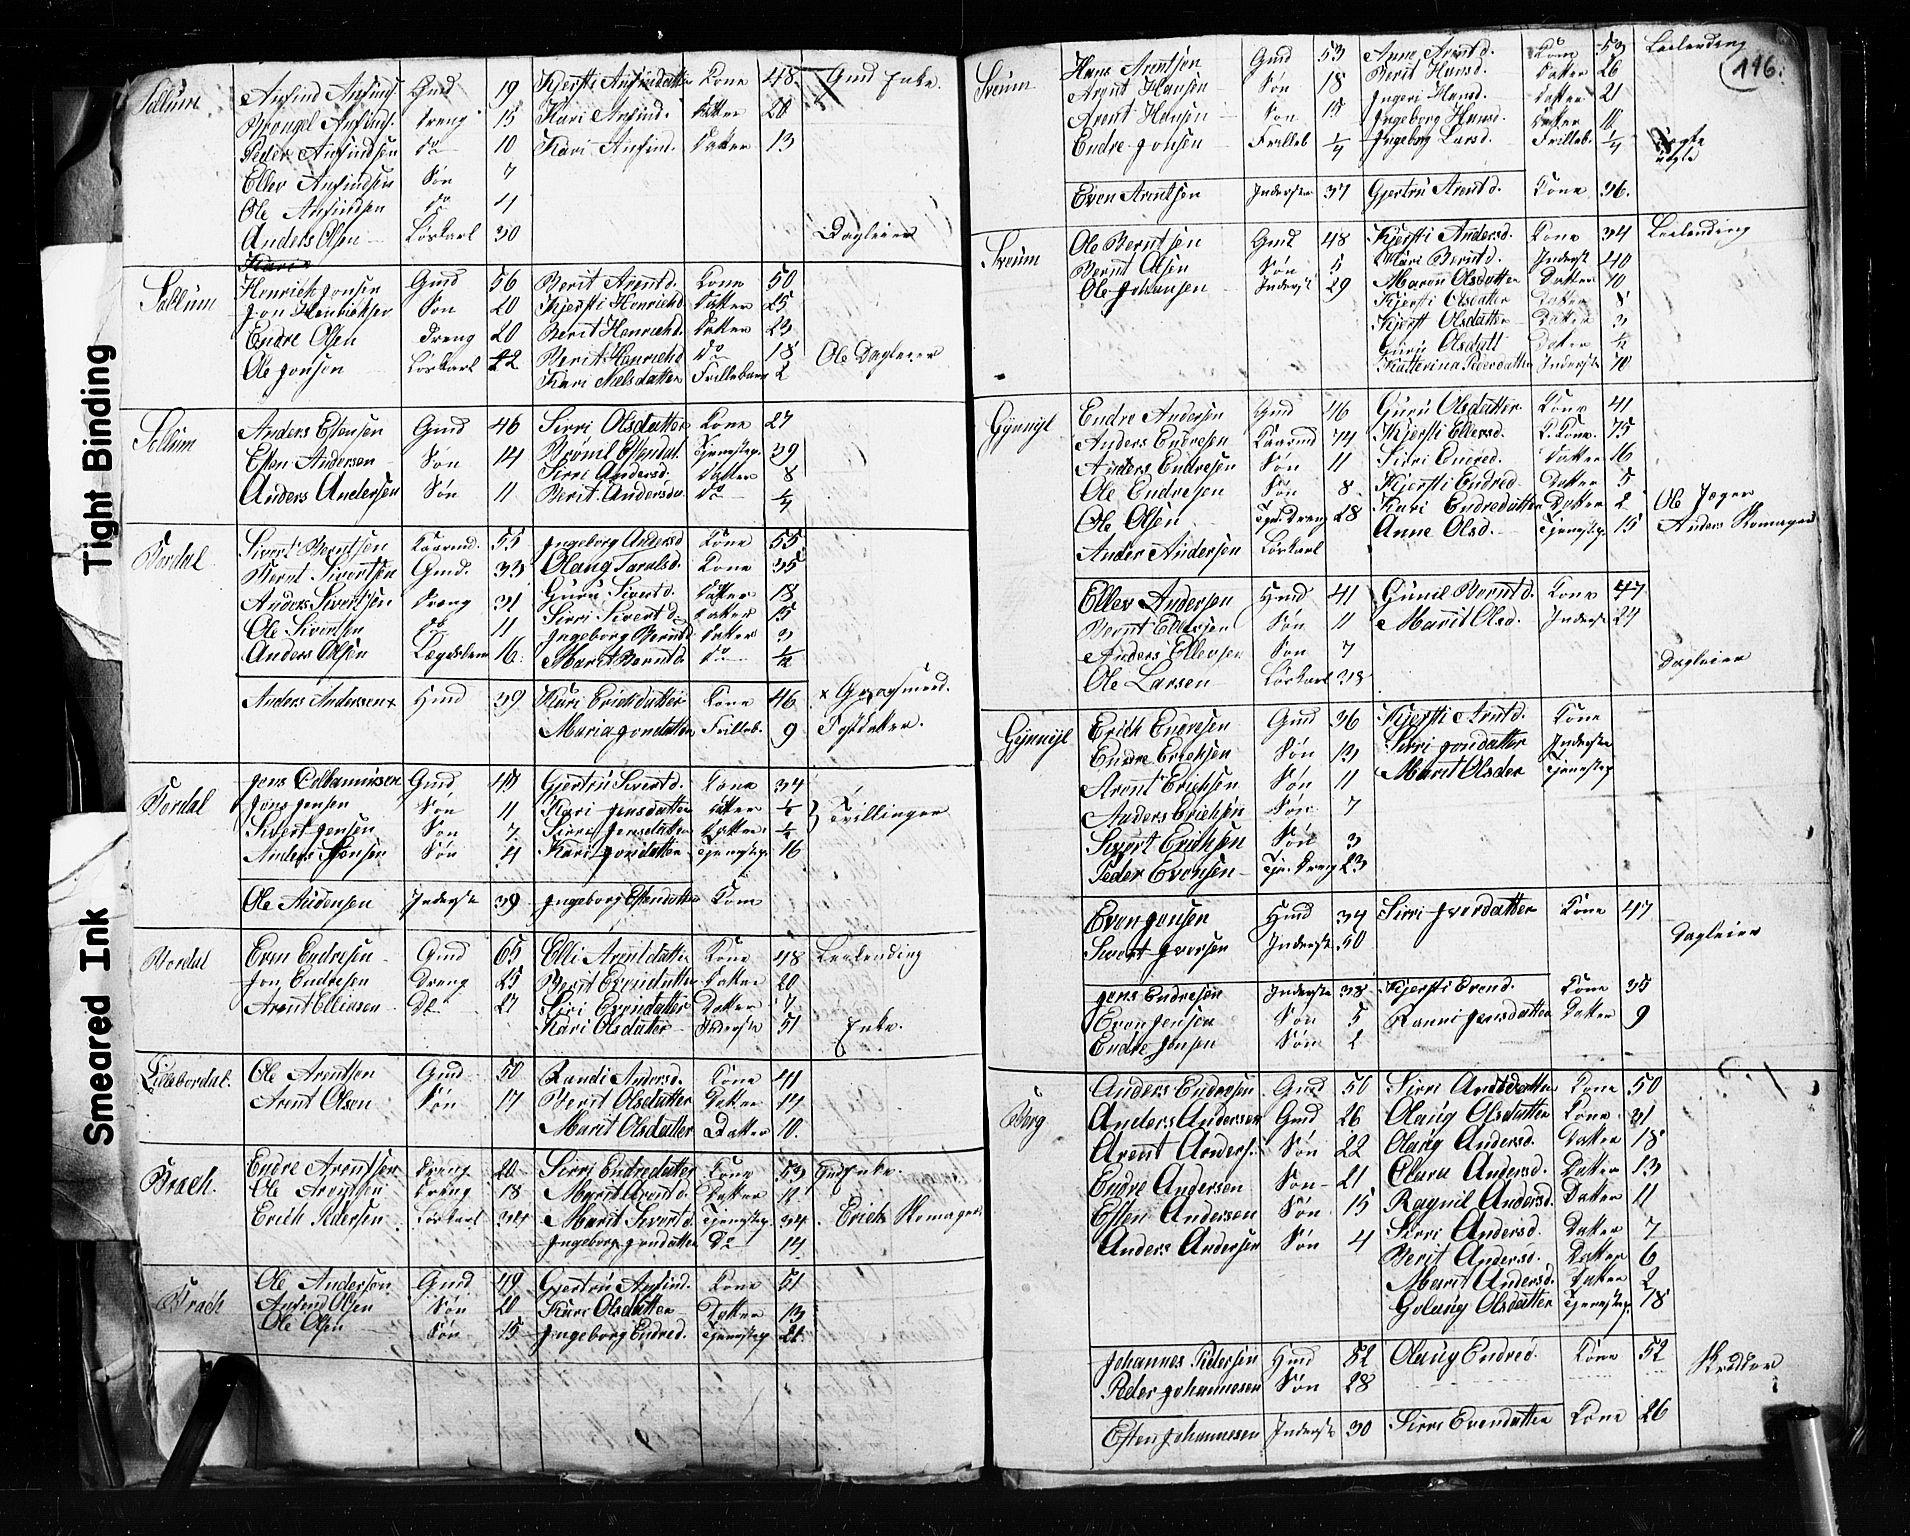 Tight Binding
Smeared Ink
Sollum Anfind Anfinds. Gmd 19 Kjersti Anfindatter Kone 48 Gmd Enke.
Brongel Anfinds. Dreng 15 Kari Anfind. Datter 20
Peder Anfindsen do 10 Kari Anfind. Datter 13
Ellev Anfindsen Søn 7
Ole Anfindsen do 4
Anders Olsen Løskarl 30 Dagleier
Sollum Henrich Jonsen Gmd 56 Berit Arentd. Kone 50
Jon Henrichsen Søn 20 Kjersti Henrichd. Datter 25
Endre Olsen Dreng 20 Berit Henrichd. Datter 23
Ole Jonsen Løskarl 42 Berit Henrichd do 18 Ole Dagleier
Kari Nielsdatter Frillebarn 2
Sollum Anders Estensen Gmd 46 Sirri Olsdatter Kone 27
Esten Andersen Søn 14 Estendat. Tjenestep. 39
Anders Andersen Søn 11 Sirri Andersd. Datter 8
Berit Andersda do 1/4
Bordal Sivert Berntsen Kaarmd. 55 Ingeborg Andersd Kone 55
Bernt Sivertsen Gmd. 33 Olaug Taralsd. Kone 35
Anders Sivertsen Dreng 31 Guru Sivertd. Datter 18
Ole Sivertsen do 11 Sirri Sivertd. Datter 15
Anders Olsen Lægdsbarn 16 Ingeborg Berntd. Datter 3
Marit Berntd. do 1/2
Anders Andersen x Hmd 39 Kari Ericksdatter Kone 46 x Graasmed.
Maria Jonsdatter Frilleb. 9 Fostdatter.
Bordal Jens Gmd 47 Gjertru Sivertd. Kone 34
Jons Jensen Søn 11 Kari Jensdatter Datter Tvillinger
Sivert Jensen Søn 7 Sirri Jensdatter Datter
Anders Jensen Søn 4 Kari Jonsdatter Tjenestep. 16
Ole Audensen Inderst 39 Ingeborg Estendatter Kone
Bordal Even Endresen Gmd 65 Elli Arentdatter Kone 48 Leilending
Jon Endresen Dreng 25 Berit Evendatter Datter 20
Arent Ellevsen Do 27 Siri Evendatter Datter 7
Kari Olsdatter Inderste 51 Enke.
Lillebordal. Ole Arentsen Gmd 50 Randi Andersd. Kone 41
Arent Olsen Søn 17 Berit Olsdatter Datter 14
Marit Olsdatter Datter 10
Brach. Endre Arentsen Dreng 20 Sirri Endredatter Kone 53 Gmd Enke.
Ole Arentsen Dreng 18 Marit Arentd. Datter 12
Erich Pedersen Løskarl 34 Marit Sivertd. Tjenestep. 34 Erich Skomager
Ingeborg Jondatter Do 14
Brach Ole Andersen Gmd. 49 Gjertru Anfind. Kone 51
Anfind Olsen Søn 20 Kari Olsdatter Datter 13
Ole Olsen Søn 15 Ingeborg Endred. Tjenestep. 21
146.
Sveum Hans Arentsen Gmd 53 Anne Arentd. Kone 53 Leilending
Arent Hansen Søn 18 Berit Hansd. Datter 26
Arent Hansen Søn 15 Ingeri Hansd. Datter 21
Endre Jonsen Frilleb 1/4 Ingeborg Hansd. Datter
Ingeborg Larsd. Frilleb. 1/4 uægte
Even Arentsen Inderste 37 Gjertru Arentd. Kone 36.
Sveum Ole Berntsen Gmd 48 Kjersti Andersd. Kone 34 Leilending
Bernt Olsen Søn 5 Mari Berntd. Inderst 40
Ole Johansen Inderst 29 Maren Olsdatter Datter 10
Kjersti Olsdatter Datter 8
Kjerst Olsdatter Datter 3
Guru Olsdatt Datter
Katterina Pedersdatter Inderste 70
Gynnyl Endre Andersen Gmd 46 Guru Olsdatter Kone 41
Anders Endresen Kaarmd 74 Kjersti Ellevsd. K.Kone 75
Anders Endresen Søn 11 Sirri Endred. Datter 16
Ole Endresen Søn 8 Kjersti Endred Datter 5
Ole Olsen Tje. Dreng 28 Kari Endredatter Datter 2 Ole Jæger
Ander Andersen Løskarl Anne Olsd. Tjenestep. 15 Anders Skomager
Ellev Andersen Hmd 41 Gunil Berntd. Kone 47
Bernt Ellevsen Søn 11 Marit Olsd. Inderste 24
Anders Ellevsen Søn 7
Ole Larsen Løskarl 38 Dagleier
Gynnyl Erich Endresen Gmd 36 Kjersti Arentd. Kone
Endre Erichsen Søn 13 Sirri Jondatter Inderste
Arent Erichsen Søn 11 Marit Olsdatter Tjenestep
Anders Erichsen Søn 7
Sivert Erichsen Søn 3
Peder Evensen Tje. Dreng 23
Even Jensen Hmd 34 Sirri Iverdatter Kone 47
Sivert Iversen Inderste 50 Dagleier
Jens Endresen Inderste 38 Kjersti Evend. Kone 35
Even Jensen Søn 5 Ranni Jensdatter Datter 9
Endre Jensen Søn 2
Berg Anders Endresen Gmd 50 Sirri Kone 50
Anders Andersen Gmd 26 Olaug Olsdatter Kone 31
Arent Anders. Søn 22 Olaug Andersd. Datter 18
Endre Andersen Søn 21 Clara Andersd. Datter 13
Esten Andersen Søn 15 Ragnil Andersd. Datter 11
Anders Andersen Søn 4 Sirri Andersd. Datter 7
Berit Andersd. Datter 6
Marit Andersd. Datter 2
Golaug Olsdatter Tjenestep. 18
Johannes Pedersen Hmd 52 Olaug Endred. Kone 52 Skrædder
Peder Johannesen Søn 28
Esten Johannesen Inderste 30 Sirri Evendatter Kone 26